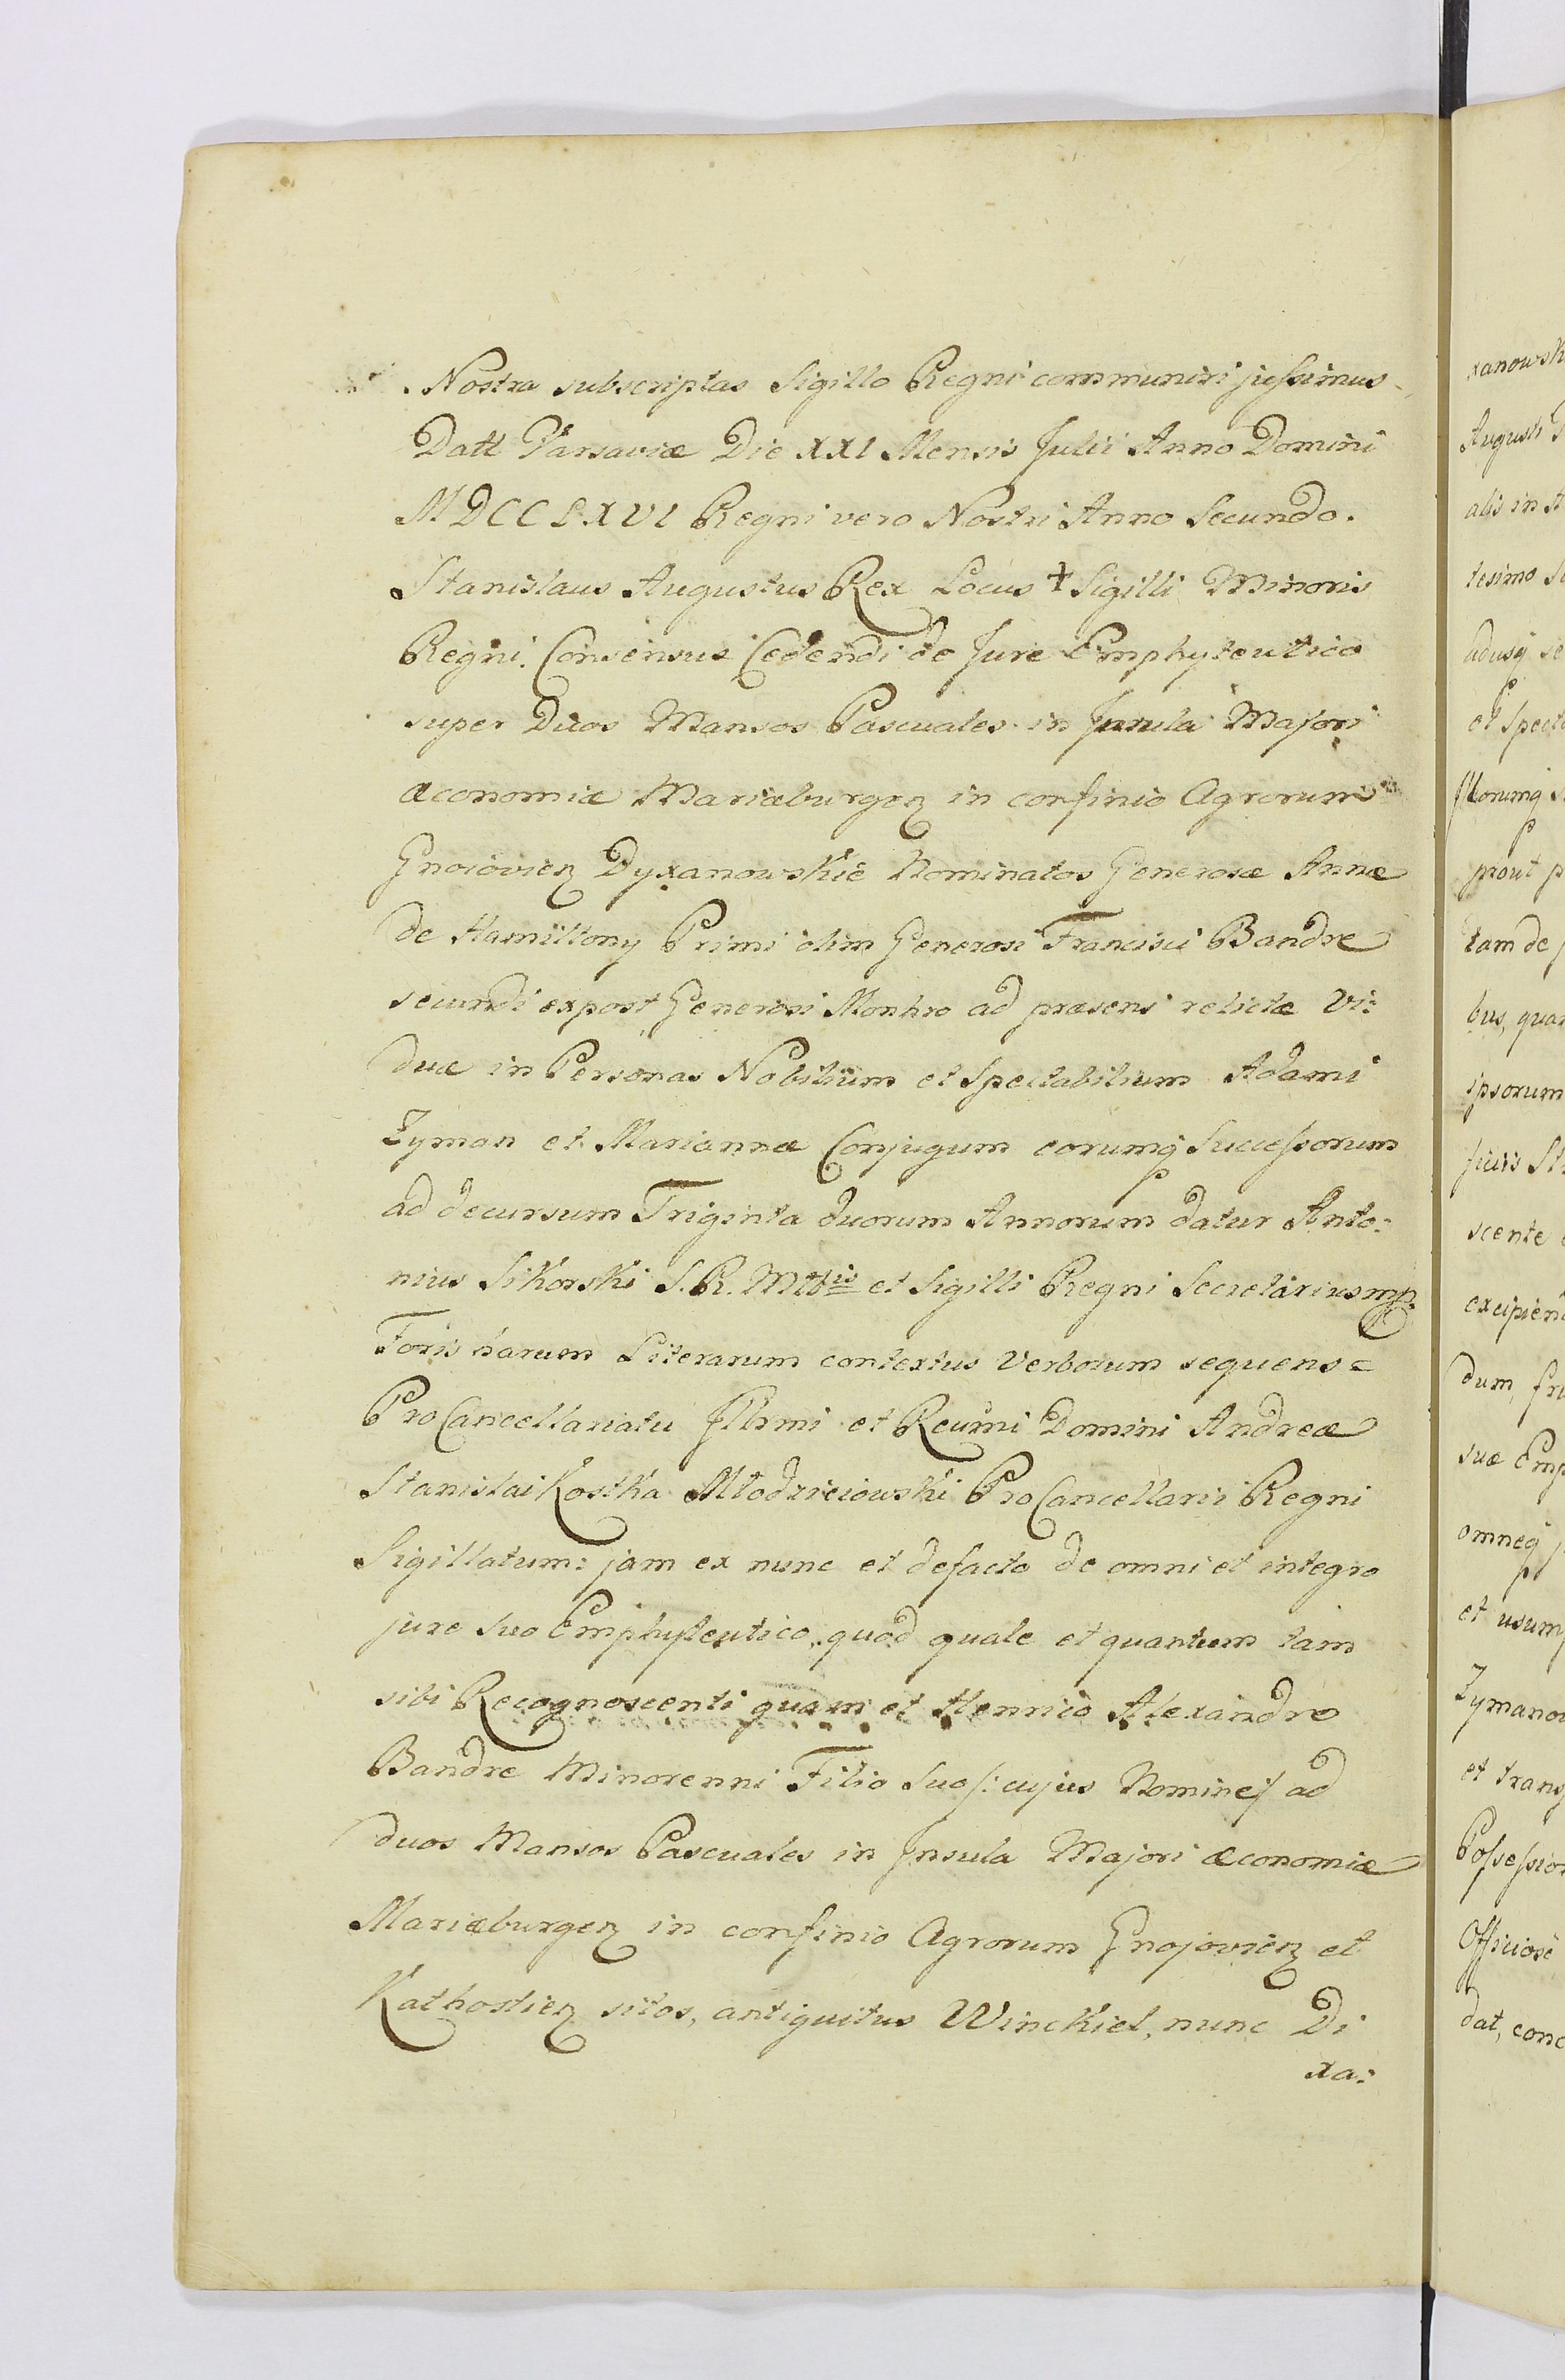 Nostra subscriptas Sigillo Regni communiri jussimus
Datt Varsaviæ Die XXI Mensis Julii Anno Domini
MDCCLXVI Regni vero Nostri Anno Secundo.
Stanislaus Augustus Rex Locus + Sigilli Minoris
Regni. Consensus Cedendi de Jure Emphyteutico
super Duos Mansos Pascuales in Insula Majori
æconomiæ Mariæburgen in confinio Agrorum
Gnoiovien Dyxanowskie Nominatos Generosæ Annæ
de Hamiltony Primi olim Generosi Francisci Bandre
secundi expost Generosi Monhro ad præsens relictæ Vi:
duæ in Personas Nobilium et Spectabilium Adami
Zyman et Mariannæ Conjugum eorumq Successorum
ad decursum Triginta duorum Annorum datur Anto:
nius Sikorski S. R. Mttis et Sigilli Regni Secretarius mp.
Foris harum Literarum contextus Verborum sequens =
ProCancellariatu Illrmi et Reurmi Domini Andreæ
Stanislai Kostka Młodzieiowski ProCancellarii Regni
Sigillatum: jam ex nunc et defacto de omni et integro
jure suo Emphyteutico, quod quale et quantum tam
sibi Recognoscenti quam et Hennrico Alexandro
Bandre Minorenni Filio Suo /: cujus Nomine :/ ad
duos Mansos Pascuales in Insula Majori æconomiæ
Mariæburgen in confinio Agrorum Gnojovien et
Kathostien sitos, antiquitus Winckiel, nunc Di
xa:
xanowsk
Augusti
alis in
tesimo
adusq se
et Spect
prout p
tam de
bus, quar
ipsorum
scente
excipien
dum, fru
suæ Emp
omneq
et usum
Zymanow
et trans
Possession
Officiosè
dat, conc